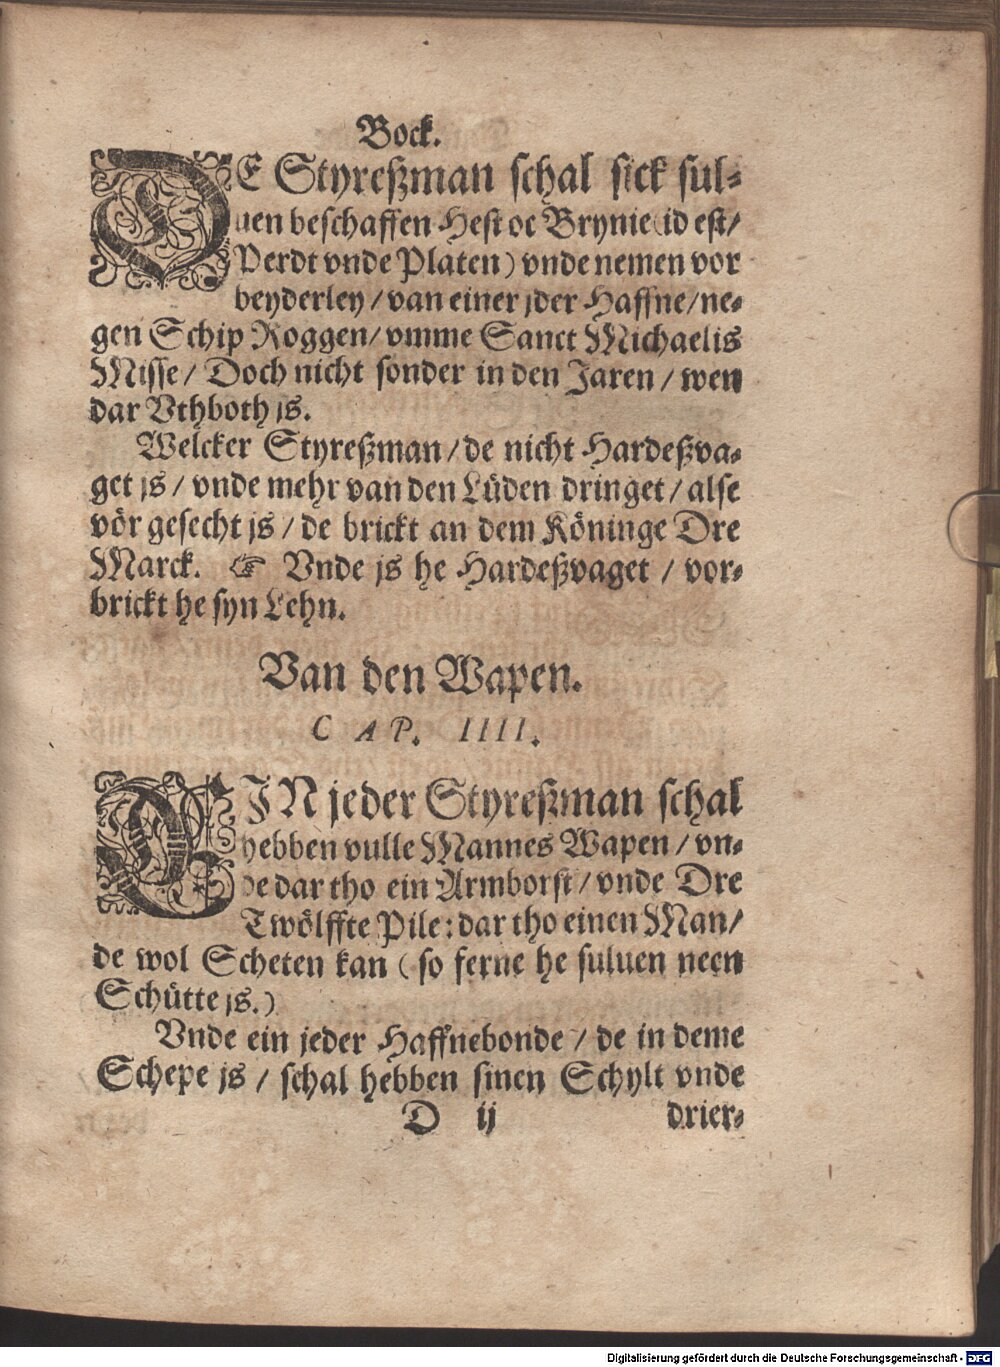 Bock.
DE Styreßman schal sick sul-
uen beschaffen Hest oc Brynie (id est/
Perdt vnde Platen) vnde nemen vor
beyderley / van einer jder Haffne / ne-
gen Schip Roggen / vmme Sanct Michaelis
Misse / Doch nicht sonder in den Jaren / wen
dar Vthboth js.
Welcker Styreßman / de nicht Hardeßva-
get js / vnde mehr van den Lüden dringet / alse
vör gesecht js / de brickt an dem Köninge Dre
Marck. ☞ Vnde js he Hardeßvaget / vor-
brickt he syn Lehn.
Van den Wapen.
CAP. IIII.
EIN jeder Styreßman schal
hebben vulle Mannes Wapen / vn-
de dar tho ein Armborst / vnde Dre
Twölffte Pile: dar tho einen Man /
de wol Scheten kan ( so ferne he suluen neen
Schütte js.)
Vnde ein jeder Haffnebonde / de in deme
Schepe js / schal hebben sinen Schylt vnde
D ij drier-
Digitalisierung gefördert durch die Deutsche Forschungsgemeinschaft - DFG